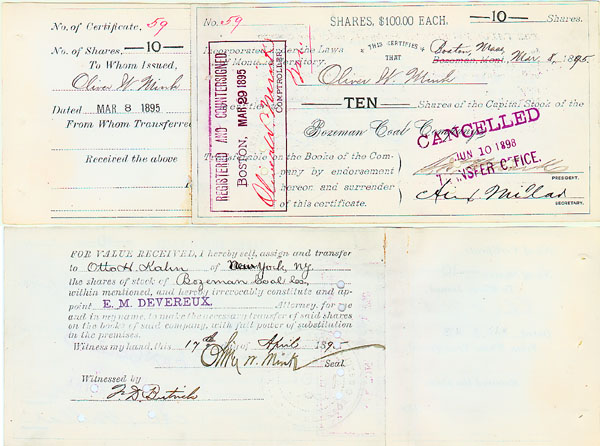 No. of Certificate, 59
No. of Shares, —10—
To Whom Issued,
Oliver W. Mink
Dated MAR 8 1895
From Whom Transferred
Received the above
No. 59
SHARES, $100.00 EACH. —10— Shares.
Incorporated under the Laws
of Montana Territory.
THIS CERTIFIES
THAT
Boston, Mass
Bozeman, Mont, Mar. 8, 1895.
Oliver W. Mink
TEN Shares of the Capital Stock of the
Bozeman Coal Company
Transferable on the Books of the Com-
pany by endorsement
hereon and surrender
of this certificate.
REGISTERED AND COUNTERSIGNED
BOSTON, MAR 29 1895
COMPTROLLER
CANCELLED
JUN 10 1898
TRANSFER OFFICE.
PRESIDENT.
SECRETARY.
FOR VALUE RECEIVED, I hereby sell, assign and transfer
to Otto H. Kahn of New York, NY
the shares of stock of Bozeman Coal Co,
within mentioned, and hereby irrevocably constitute and ap-
point E. M. DEVEREUX. Attorney, for me
and in my name, to make the necessary transfer of said shares
on the books of said company, with full power of substitution
in the premises.
Witness my hand, this 17th day of April 1895
W. Mink Seal.
Witnessed by